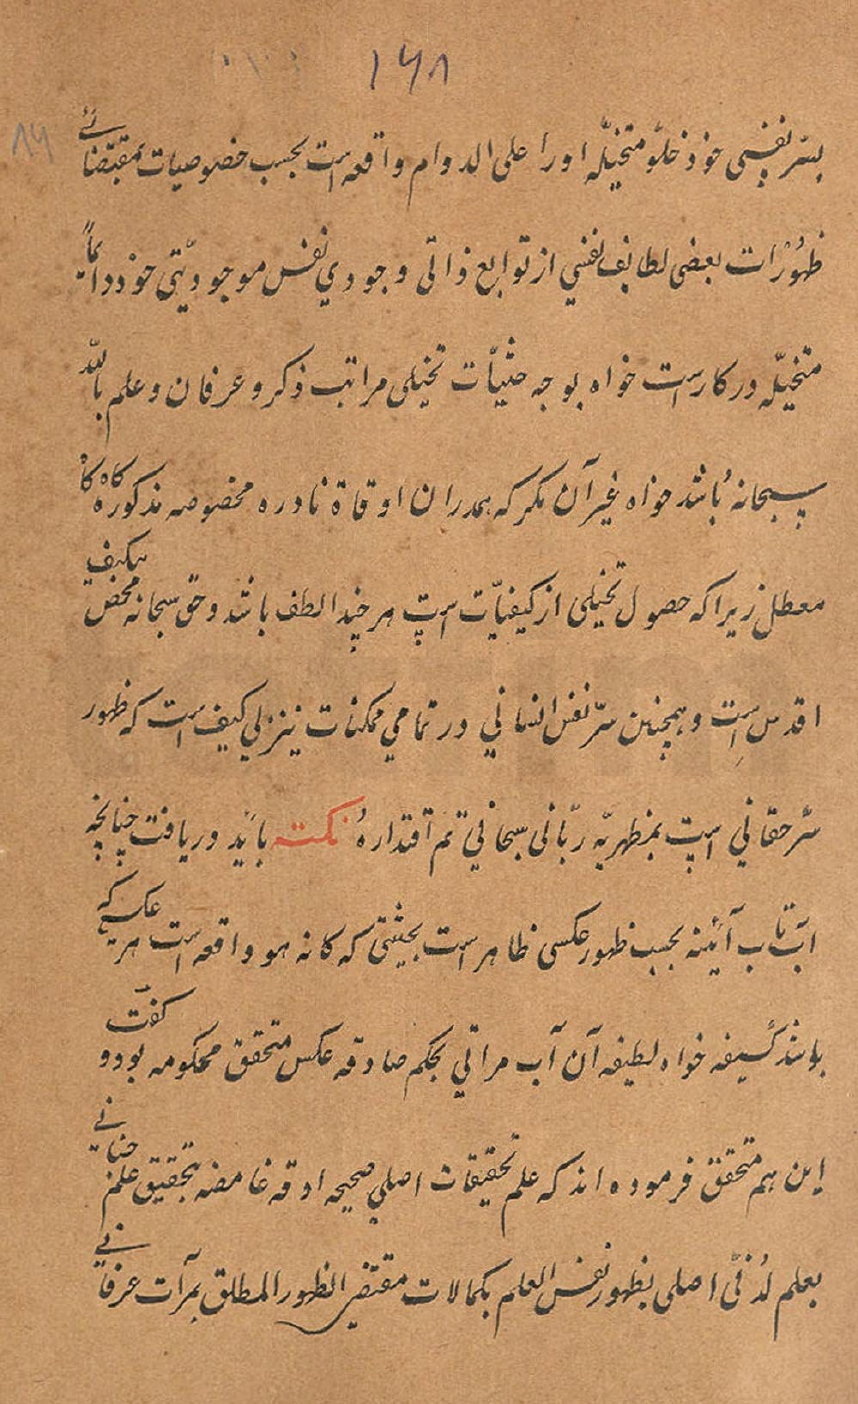 ۱۶۸
۸۴
بسّر نفسی خود خلو متخیلّه اورا علی الدوام واقعه است بحسب خصوصیات بمقتضائے
ظهورات بعضی لطایف نفسی از توابع ذاتی وجودی نفس موجودیتی خود دایماً
متخیلّه درکار است خواه بوجه حثییّات تخیلی مراتب ذکر و عرفان و علم باللّه
سبحانهُ باشد خواه غیر آن مکر که بهمدران اوقاة نادره مخصوصه مذکوره کاه کاه
معطل زیرا که حصول تخیلی از کیفیّات است هر چند الطف باشد و حق سبحانه محض بیکیف
اقدس است و همچنین سرّ نفس انسانی در تمامی ممکنات نیز بی کیف است که ظهور
سّر حقانی است بمظهریّه ربّانی سبحانی تم اقتدارهُ نکته باید دریافت چنانچه
آب تاب آئینه بحسب ظهور عکسی ظاهر است بحیثیتی که کانه هو واقعه است هر عکسی که
باشد کسیفه خواه لطیفه آن آب مراتی بحکم صادقه عکس متحقق محکومه بود و کفت
این هم متحقق فرموده اند که علم تحقیقات اصلی صحیحه ادقه غامضه بتحقیق علم حنانے
بعلم لدُنّی اصلی بظهور نفس العلم بکمالات مقتضی الظهور المطلق بمرآت عرفانے